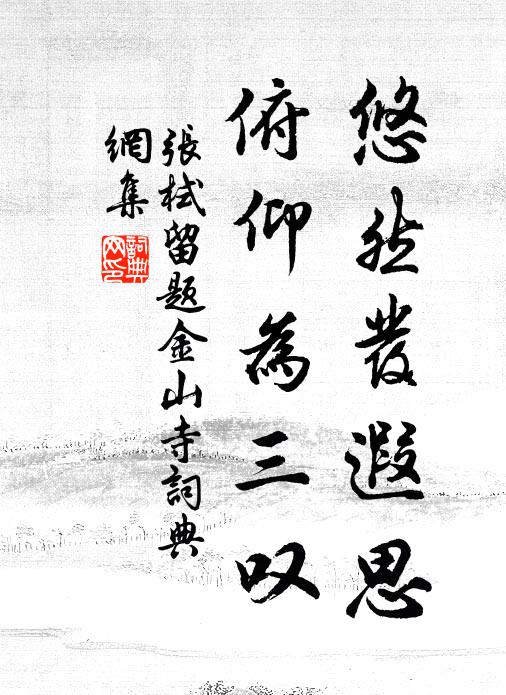 悠然发遐思
俯仰为三叹
張栻留题金山寺詞典
網集
詞典
网印